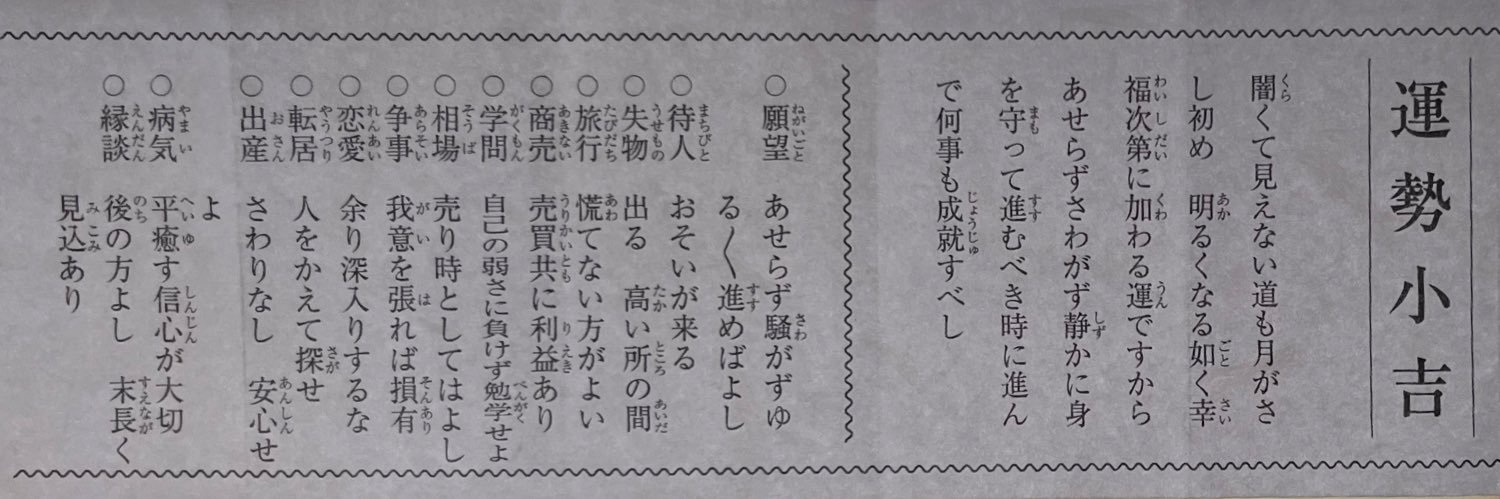 運勢小吉
闇くて見えない道も月がさ
し初め　明るくなる如く幸
福次第に加わる運ですから
あせらずさわがず静かに身
を守って進むべき時に進ん
で何事も成就すべし
○願望　あせらず騒がずゆ
る〱進めばよし
○待人　おそいが来る
○失物　出る　高い所の間
○旅行　慌てない方がよい
○商売　売買共に利益あり
○学問　自己の弱さに負けず勉学せよ
○相場　売り時としてはよし
○争事　我意を張れば損有
○恋愛　余り深入りするな
○転居　人をかえて探せ
○出産　さわりなし　安心せ
よ
○病気　平癒す信心が大切
○縁談　後の方よし　末長く
見込あり